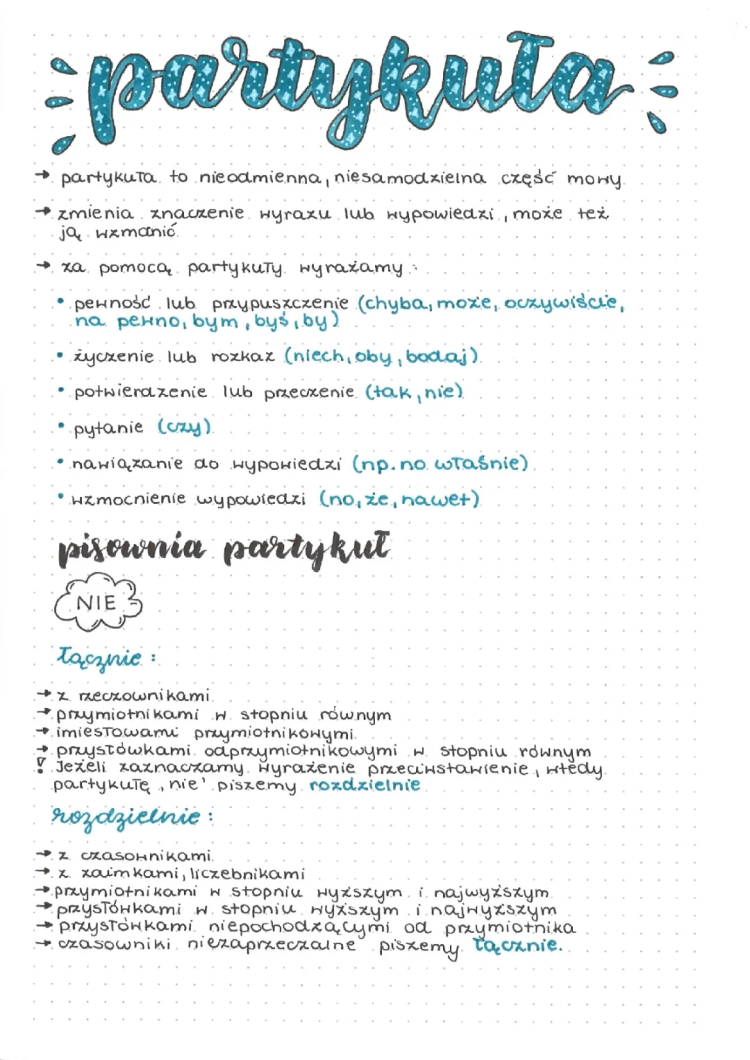 partykuła
→ partykuła to nieodmienna, niesamodzielna część mowy
→ zmienia znaczenie wyrazu lub wypowiedzi, może też
ją wzmanić
→ za pomocą partykuły wyrażamy:
• pewność lub przypuszczenie (chyba, może, oczywiście,
na pewno, bym, byś, by)
• życzenie lub rozkaz (niech, oby, bodaj)
• potwierdzenie lub przeczenie (tak, nie)
• pytanie (czy)
• nawiązanie do wypowiedzi (np. no właśnie)
• wzmocnienie wypowiedzi (no, że, nawet)
pisownia partykuł
NIE
łącznie:
→ z rzeczownikami
→ przymiotnikami w stopniu równym
→ imiesłowami przymiotnikowymi
→ przysłówkami odprzymiotnikowymi w stopniu równym
! Jeżeli zaznaczamy wyrażenie przeciwstawienie, wtedy
partykułę ,nie' piszemy rozdzielnie
rozdzielnie:
→ z czasownikami
→ z zaimkami, liczebnikami
→ przymiotnikami w stopniu wyższym i najwyższym
→ przysłówkami w stopniu wyższym i najwyższym
→ przysłówkami niepochodzącymi od przymiotnika
→ czasowniki niezaprzeczalne piszemy łącznie.